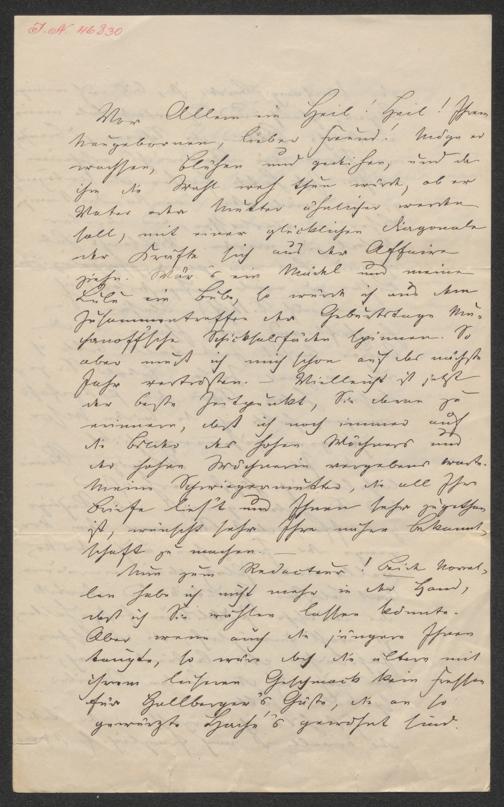 I. N. 46330
Vor Allem ein Heil! Heil! Ihrem
Neugebornen, lieber Freund! Möge er
wachsen, blühen und gedeihen, und da
ihm die Wahl weh thun würde, ob er
Vater oder Mutter ähnlicher werden
soll, mit einer glücklichen Diagonale
der Kräfte sich aus der Affaire
ziehn. Wär's ein Mädel und meine
Lulu ein Bube, so würde ich aus dem
Zusammentreffen der Geburtstage
Schicksalsfäden spinnen. So
aber muß ich mich schon auf das nächste
Jahr vertrösten. – Vielleicht ist jetzt
der beste Zeitpunkt, Sie daran zu
erinnern, daß ich noch immer auf
die Bilder des hohen Wöchners und
der hohen Wöchnerin vergebens warte.
Meine Schwiegermutter, die all Ihre
Briefe lies't und Ihnen sehr zugethan
ist, wünscht sehr Ihre nähere Bekannt-
schaft zu machen. –
Nun zum Redacteur! Beide Novel-
len habe ich nicht mehr in der Hand,
daß ich Sie wählen lassen könnte.
Aber wenn auch die jüngere Ihnen
taugte, so wäre doch die ältere mit
ihrem Geschmack kein Fressen
für Hallberger's Gäste, die an so
gewürzte Haché's gewöhnt sind.